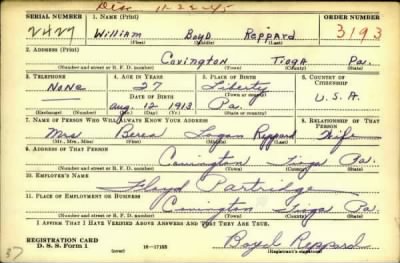 Dis 11-22-45
SERIAL NUMBER 1. NAME (Print) ORDER NUMBER
2427 William Boyd Reppard 3193
(First) (Middle) (Last)
2. ADDRESS (Print)
Covington Tioga Pa.
(Number and street or R. F. D. number) (Town) (County) (State)
3. TELEPHONE 4. AGE IN YEARS 5. PLACE OF BIRTH 6. COUNTRY OF CITIZENSHIP
None 27 Liberty
DATE OF BIRTH (Town or county) U.S.A.
Aug. 12 1913 Pa.
(Mo.) (Day) (Yr.) (State or country)
7. NAME OF PERSON WHO WILL ALWAYS KNOW YOUR ADDRESS 8. RELATIONSHIP OF THAT PERSON
Mrs Logan Reppard Wife
(Mr., Mrs., Miss) (First) (Middle) (Last)
9. ADDRESS OF THAT PERSON
Covington Tioga Pa.
(Number and street or R. F. D. number) (Town) (County) (State)
10. EMPLOYER'S NAME
Floyd Partridge
11. PLACE OF EMPLOYMENT OR BUSINESS
Covington Tioga Pa.
(Number and street or R. F. D. number) (Town) (County) (State)
I AFFIRM THAT I HAVE VERIFIED ABOVE ANSWERS AND THAT THEY ARE TRUE.
REGISTRATION CARD
D. S. S. Form 1 (over) 16-17105 Boyd Reppard
(Registrant's signature)
37